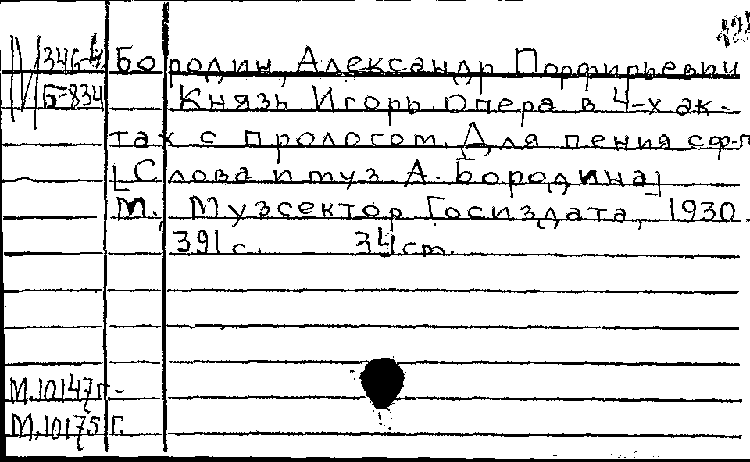 346-4 Бородин, Александр Порфирьевич
Б-834 Князь Игорь Опера в 4-х ак-
тах с прологом. Для пения с ф-п
[Слова и муз А. Бородина]
М., Музсектор Госиздата, 1930.
391 с. 34 cm.
М.10147г.
М.10175г.